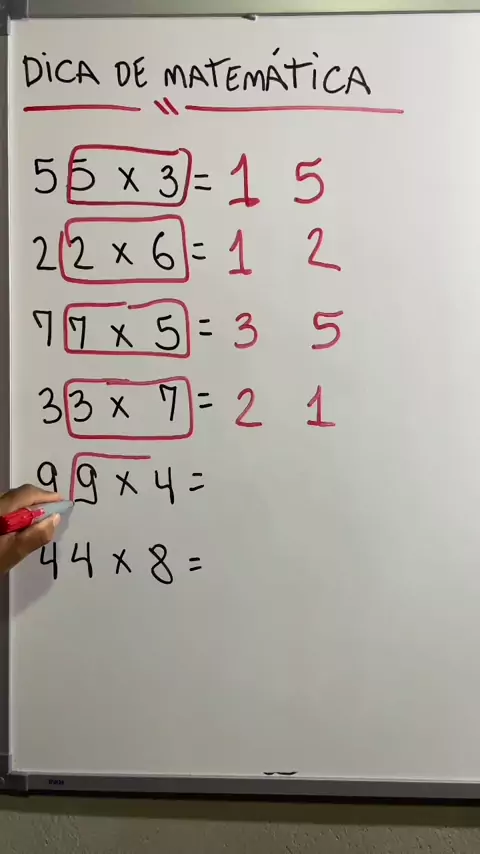 DICA DE MATEMÁTICA
55 x 3 = 1 5
22 x 6 = 1 2
77 x 5 = 3 5
33 x 7 = 2 1
99 x 4 =
44 x 8 =